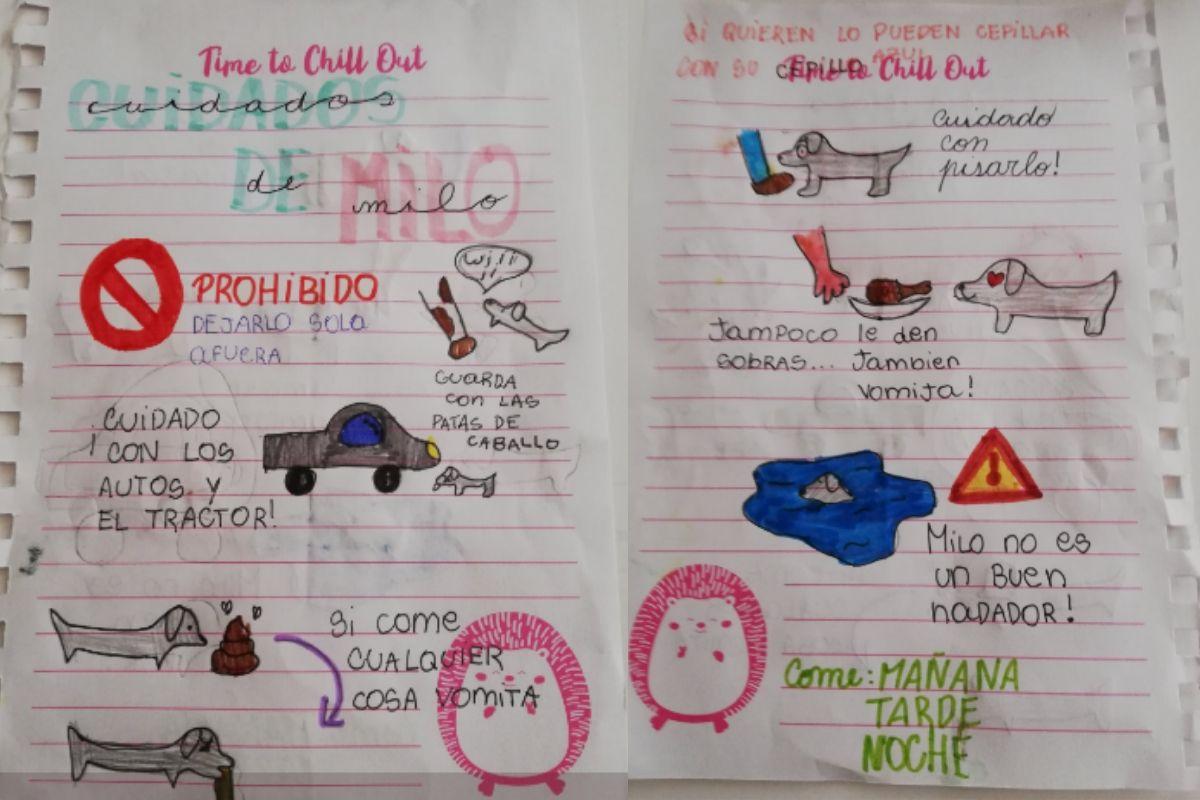 Time to Chill Out
CUIDADOS
cuidados
DE MILO
de milo
PROHIBIDO
DEJARLO SOLO
AFUERA
Wiiii
GUARDA
CON LAS
PATAS DE
CABALLO
CUIDADO
CON LOS
AUTOS Y
EL TRACTOR!
Si come
CUALQUIER
COSA VOMITA
Si QUIEREN LO PUEDEN CEPILLAR
CON SU CEPILLO AZUL
Time to Chill Out
Cuidado
con
pisarlo!
TAMPOCO le den
SOBRAS... Tambien
vomita!
MILO no es
un BUEN
NADADOR!
Come: MAÑANA
TARDE
NOCHE